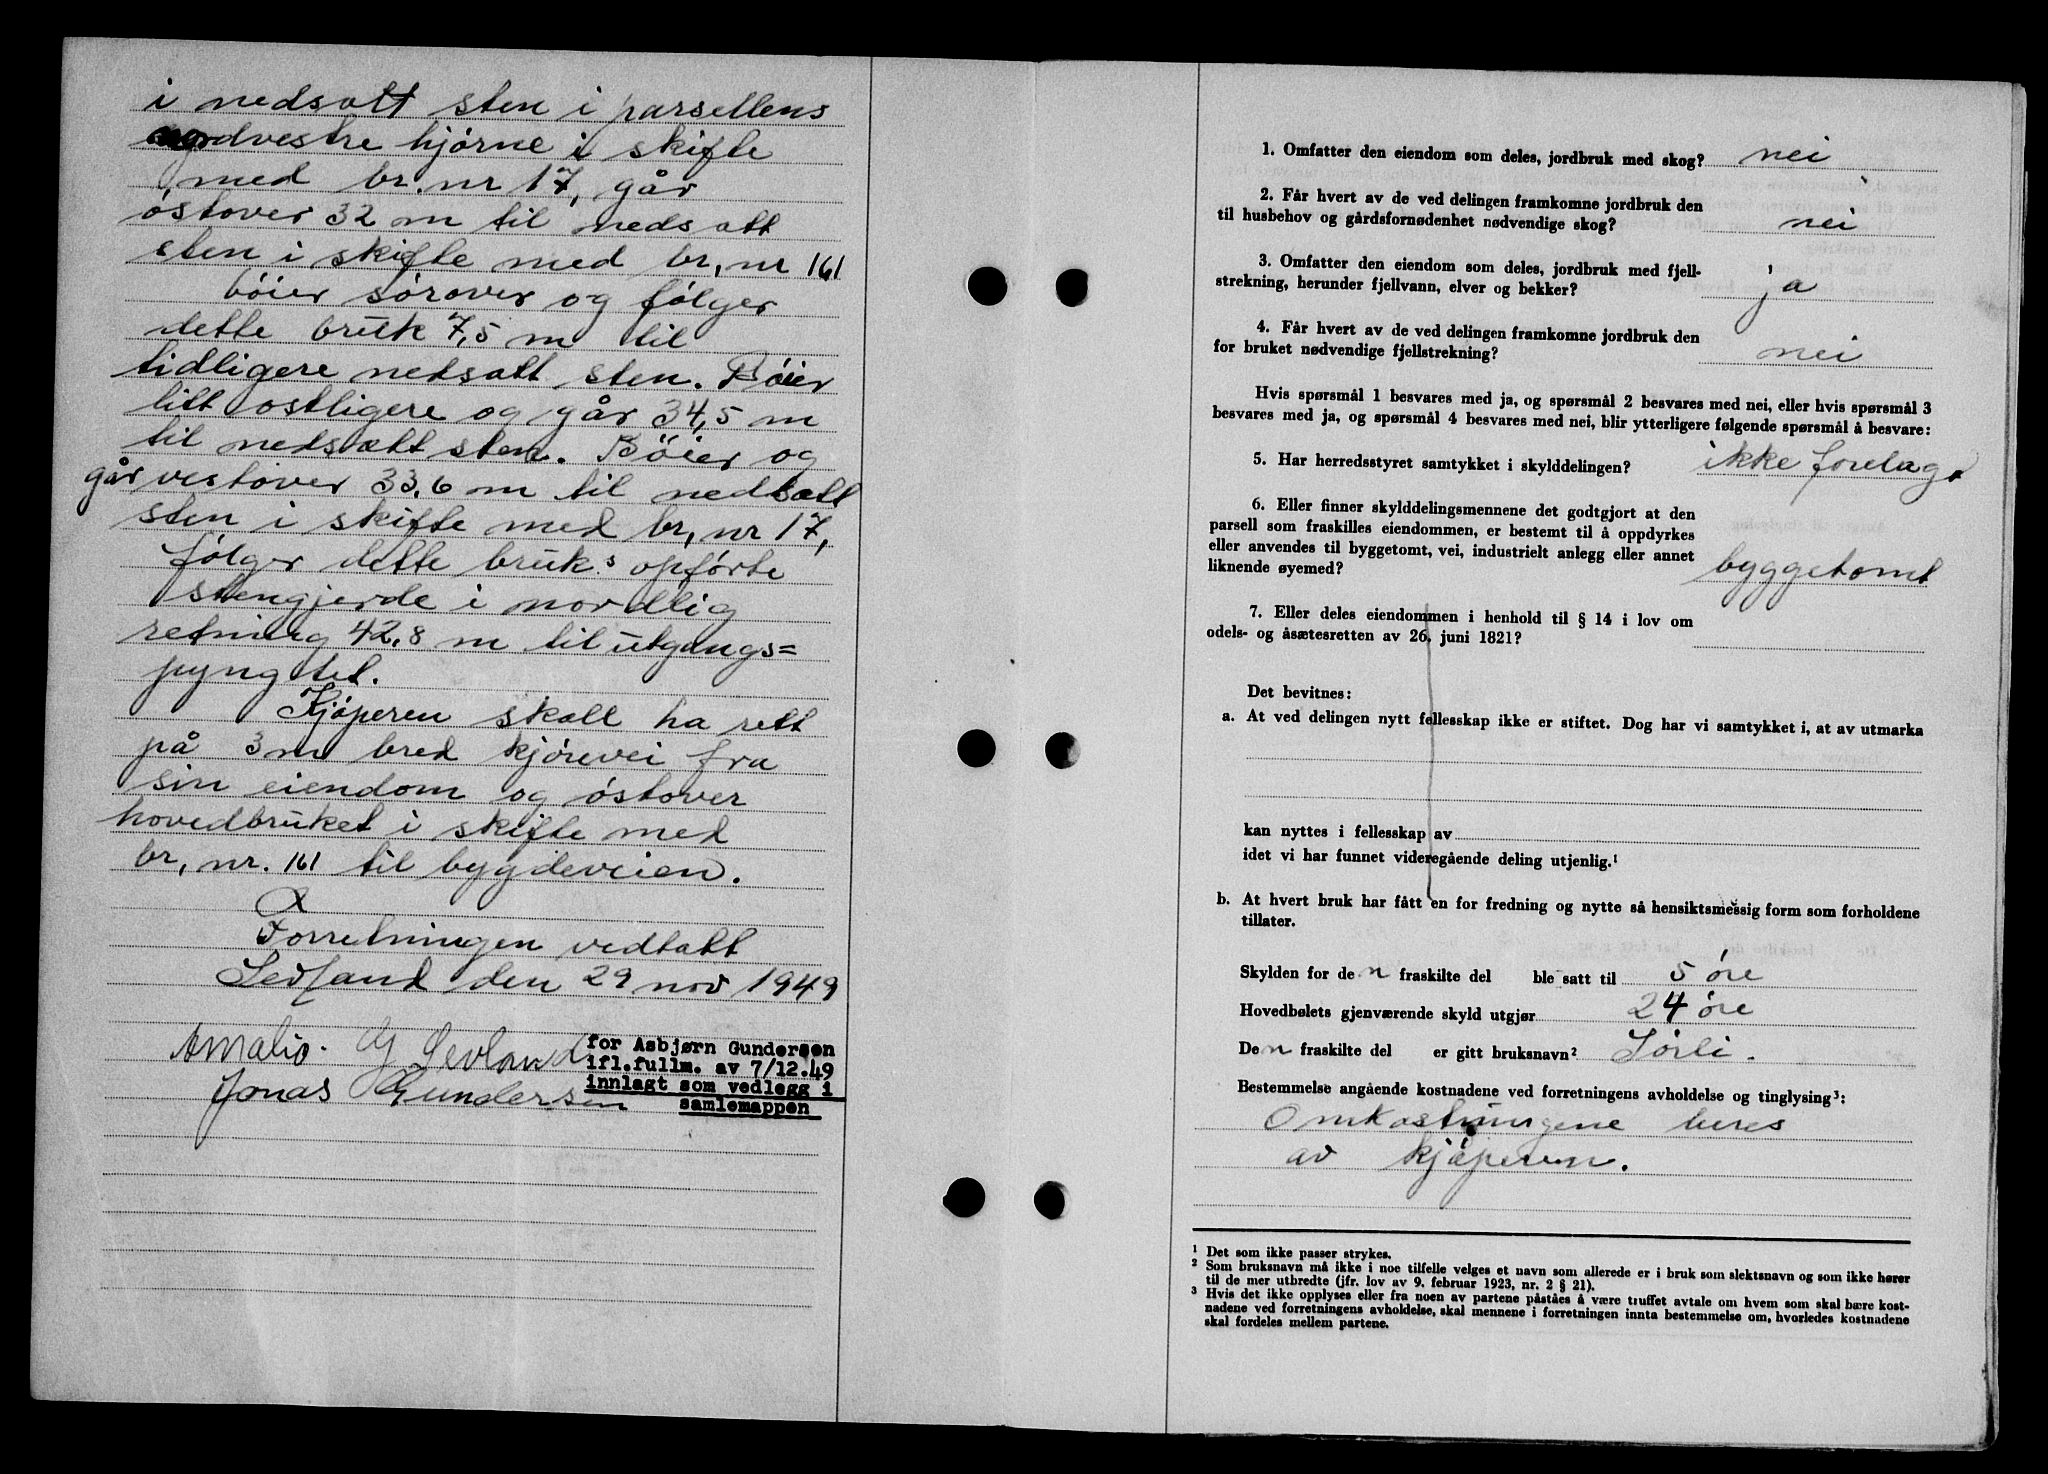 i nedsatt sten i parsellens
nordvestre hjørne i skifte
med br. nr 17, går
østover 32 m til nedsatt
sten i skifte med br, nr 161
bøier sørover og følger
dette bruk 7,5 m til
tidligere nedsatt sten. Bøier
litt ostligere og går 34,5 m
til nedsatt sten. Bøier og
går vestover 33,6 m til nedsatt
sten i skifte med br, nr 17,
følger dette bruks opførte
stengjerde i nordlig
retning 42,8 m til utgangs=
pyngtet.
Kjøperen skall ha rett
på 3 m bred kjørevei fra
sin eiendom og østover
hovedbruket i skifte med
br, nr. 161 til bygdeveien.
Forretningen vedtatt
Sevland den 29 nov 1949
Amalie Gj Sevland
Jonas Gundersen
for Asbjørn Gundersen
ifl.fullm. av 7/12.49
innlagt som vedlegg i
samlemappen
1. Omfatter den eiendom som deles, jordbruk med skog? nei
2. Får hvert av de ved delingen framkomne jordbruk den
til husbehov og gårdsfornødenhet nødvendige skog? nei
3. Omfatter den eiendom som deles, jordbruk med fjell-
strekning, herunder fjellvann, elver og bekker? ja
4. Får hvert av de ved delingen framkomne jordbruk den
for bruket nødvendige fjellstrekning? nei
Hvis spørsmål 1 besvares med ja, og spørsmål 2 besvares med nei, eller hvis spørsmål 3
besvares med ja, og spørsmål 4 besvares med nei, blir ytterligere følgende spørsmål å besvare:
5. Har herredsstyret samtykket i skylddelingen? ikke forelag.
6. Eller finner skylddelingsmennene det godtgjort at den
parsell som fraskilles eiendommen, er bestemt til å oppdyrkes
eller anvendes til byggetomt, vei, industrielt anlegg eller annet
liknende øyemed? byggetomt
7. Eller deles eiendommen i henhold til § 14 i lov om
odels- og åsætesretten av 26. juni 1821?
Det bevitnes:
a. At ved delingen nytt fellesskap ikke er stiftet. Dog har vi samtykket i, at av utmarka
kan nyttes i fellesskap av
idet vi har funnet videregående deling utjenlig.¹
b. At hvert bruk har fått en for fredning og nytte så hensiktsmessig form som forholdene
tillater.
Skylden for de n fraskilte del ble satt til 5 øre
Hovedbølets gjenværende skyld utgjør 24 øre
De n fraskilte del er gitt bruksnavn² Sørli.
Bestemmelse angående kostnadene ved forretningens avholdelse og tinglysing³:
Omkostningene beres
av kjøperen.
¹ Det som ikke passer strykes.
² Som bruksnavn må ikke i noe tilfelle velges et navn som allerede er i bruk som slektsnavn og som ikke hører
til de mer utbredte (jfr. lov av 9. februar 1923, nr. 2 § 21).
³ Hvis det ikke opplyses eller fra noen av partene påståes å være truffet avtale om hvem som skal bære kost-
nadene ved forretningens avholdelse, skal mennene i forretningen innta bestemmelse om, hvorledes kostnadene
skal fordeles mellem partene.